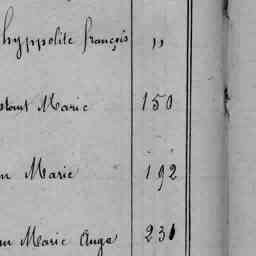 hyppolite françois "
Marie 150
Marie 192
Marie Ange 231